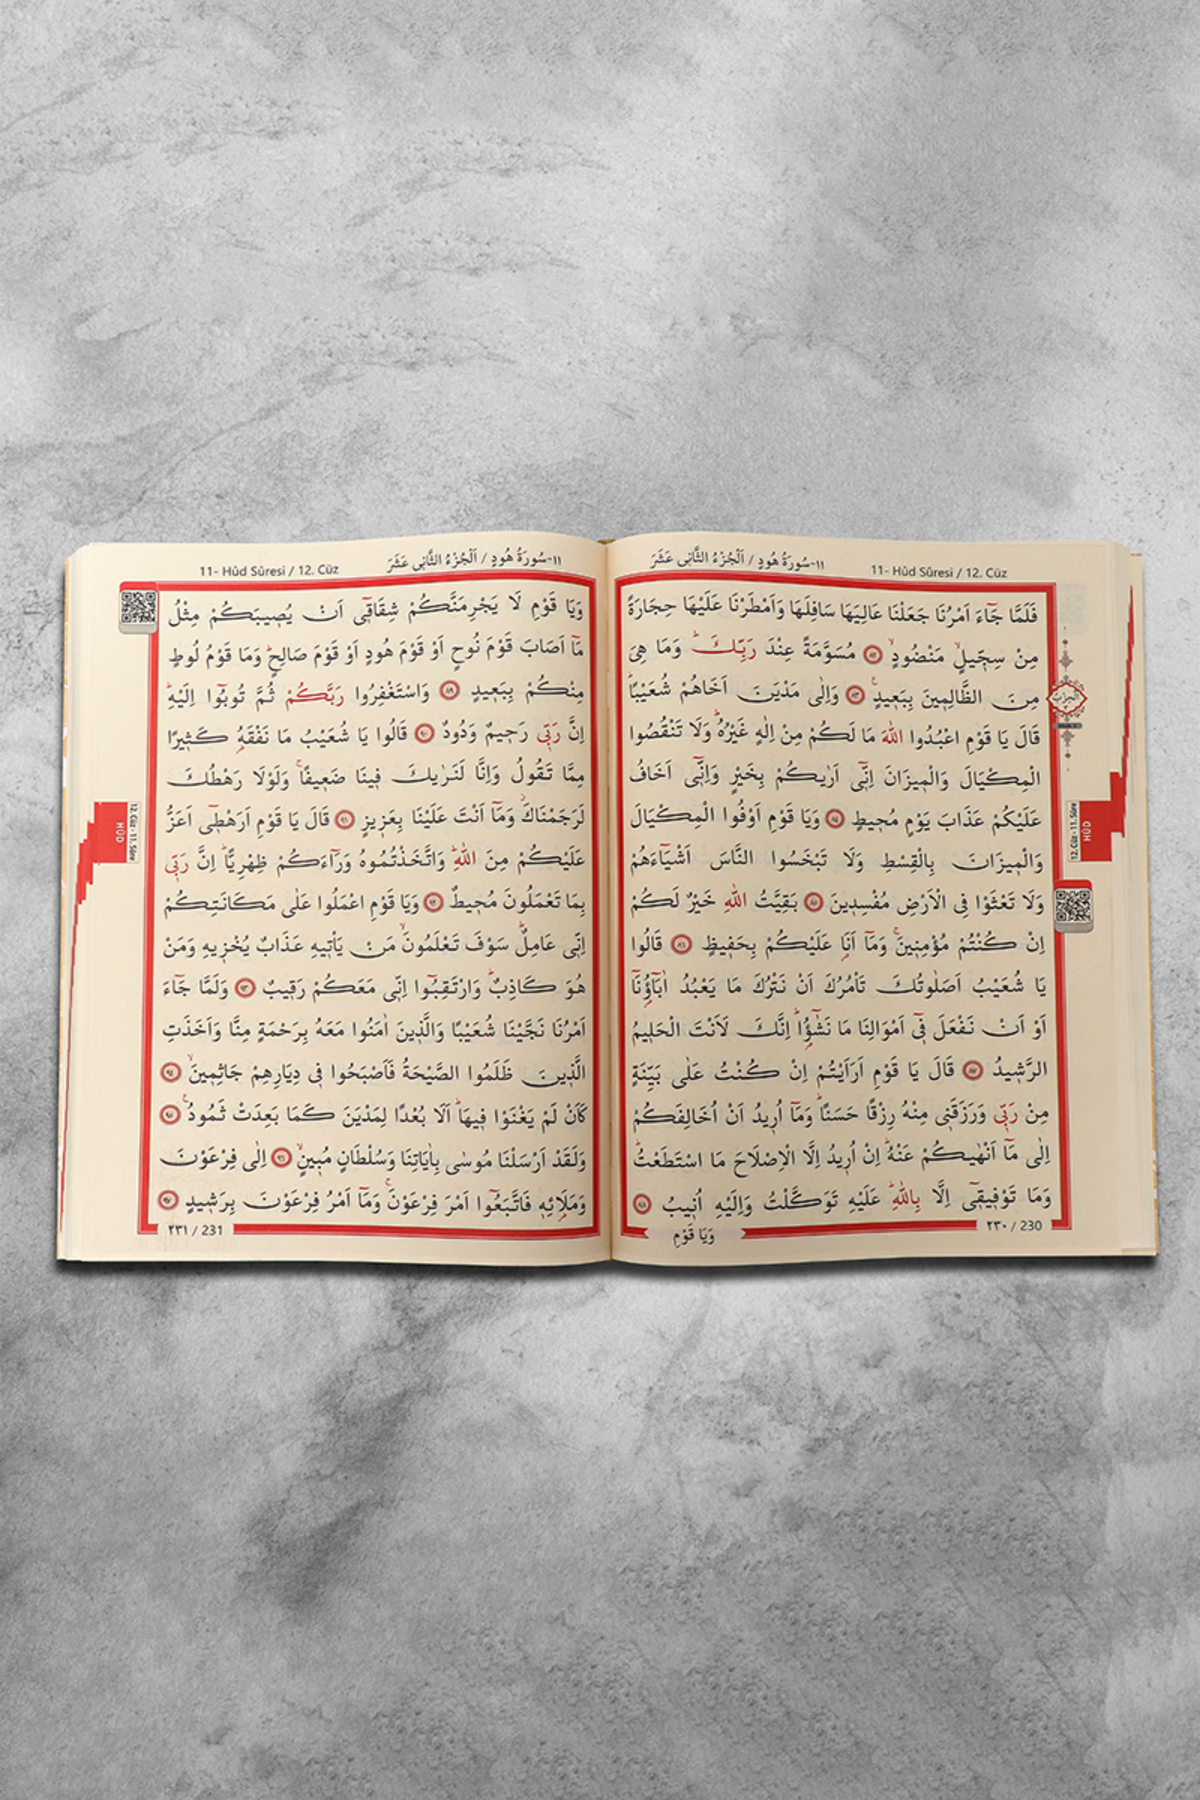 11- Hûd Sûresi / 12. Cüz
١١-سُورَةُ هُودٍ / اَلْجُزْءُ الثَّانِى عَشَرَ
فَلَمَّا جَٓاءَ اَمْرُنَا جَعَلْنَا عَالِيَهَا سَافِلَهَا وَاَمْطَرْنَا عَلَيْهَا حِجَارَةً
مِنْ سِجّ۪يلٍۙ مَنْضُودٍۙ ﴿٨٢﴾ مُسَوَّمَةً عِنْدَ رَبِّكَۜ وَمَا هِيَ
مِنَ الظَّالِم۪ينَ بِبَع۪يدٍ۟ ﴿٨٣﴾ وَاِلٰى مَدْيَنَ اَخَاهُمْ شُعَيْبًاۜ
قَالَ يَا قَوْمِ اعْبُدُوا اللّٰهَ مَا لَكُمْ مِنْ اِلٰهٍ غَيْرُهُۜ وَلَا تَنْقُصُوا
الْمِكْيَالَ وَالْم۪يزَانَ اِنّ۪ٓي اَرٰيكُمْ بِخَيْرٍ وَاِنّ۪ٓي اَخَافُ
عَلَيْكُمْ عَذَابَ يَوْمٍ مُح۪يطٍ ﴿٨٤﴾ وَيَا قَوْمِ اَوْفُوا الْمِكْيَالَ
وَالْم۪يزَانَ بِالْقِسْطِ وَلَا تَبْخَسُوا النَّاسَ اَشْيَٓاءَهُمْ
وَلَا تَعْثَوْا فِي الْاَرْضِ مُفْسِد۪ينَ ﴿٨٥﴾ بَقِيَّتُ اللّٰهِ خَيْرٌ لَكُمْ
اِنْ كُنْتُمْ مُؤْمِن۪ينَۚ وَمَٓا اَنَا۬ عَلَيْكُمْ بِحَف۪يظٍ ﴿٨٦﴾ قَالُوا
يَا شُعَيْبُ اَصَلٰوتُكَ تَأْمُرُكَ اَنْ نَتْرُكَ مَا يَعْبُدُ اٰبَٓاؤُ۬نَٓا
اَوْ اَنْ نَفْعَلَ ف۪ٓي اَمْوَالِنَا مَا نَشٰٓؤُ۬اۜ اِنَّكَ لَاَنْتَ الْحَل۪يمُ
الرَّش۪يدُ ﴿٨٧﴾ قَالَ يَا قَوْمِ اَرَاَيْتُمْ اِنْ كُنْتُ عَلٰى بَيِّنَةٍ
مِنْ رَبّ۪ي وَرَزَقَن۪ي مِنْهُ رِزْقًا حَسَنًاۜ وَمَٓا اُر۪يدُ اَنْ اُخَالِفَكُمْ
اِلٰى مَٓا اَنْهٰيكُمْ عَنْهُۜ اِنْ اُر۪يدُ اِلَّا الْاِصْلَاحَ مَا اسْتَطَعْتُۜ
وَمَا تَوْف۪يق۪ٓي اِلَّا بِاللّٰهِۜ عَلَيْهِ تَوَكَّلْتُ وَاِلَيْهِ اُن۪يبُ ﴿٨٨﴾
٢٣٠ / 230
وَيَا قَوْمِ
12. Cüz - 11. Sûre
HÛD
اَلْحِزْبُ
١١-سُورَةُ هُودٍ / اَلْجُزْءُ الثَّانِى عَشَرَ
11- Hûd Sûresi / 12. Cüz
وَيَا قَوْمِ لَا يَجْرِمَنَّكُمْ شِقَاق۪ٓي اَنْ يُص۪يبَكُمْ مِثْلُ
مَٓا اَصَابَ قَوْمَ نُوحٍ اَوْ قَوْمَ هُودٍ اَوْ قَوْمَ صَالِحٍۜ وَمَا قَوْمُ لُوطٍ
مِنْكُمْ بِبَع۪يدٍ ﴿٨٩﴾ وَاسْتَغْفِرُوا رَبَّكُمْ ثُمَّ تُوبُٓوا اِلَيْهِۜ
اِنَّ رَبّ۪ي رَح۪يمٌ وَدُودٌ ﴿٩٠﴾ قَالُوا يَا شُعَيْبُ مَا نَفْقَهُ كَث۪يرًا
مِمَّا تَقُولُ وَاِنَّا لَنَرٰيكَ ف۪ينَا ضَع۪يفًاۚ وَلَوْلَا رَهْطُكَ
لَرَجَمْنَاكَۘ وَمَٓا اَنْتَ عَلَيْنَا بِعَز۪يزٍ ﴿٩١﴾ قَالَ يَا قَوْمِ اَرَهْط۪ٓي اَعَزُّ
عَلَيْكُمْ مِنَ اللّٰهِۜ وَاتَّخَذْتُمُوهُ وَرَٓاءَكُمْ ظِهْرِيًّاۜ اِنَّ رَبّ۪ي
بِمَا تَعْمَلُونَ مُح۪يطٌ ﴿٩٢﴾ وَيَا قَوْمِ اعْمَلُوا عَلٰى مَكَانَتِكُمْ
اِنّ۪ي عَامِلٌۜ سَوْفَ تَعْلَمُونَۙ مَنْ يَأْت۪يهِ عَذَابٌ يُخْز۪يهِ وَمَنْ
هُوَ كَاذِبٌۜ وَارْتَقِبُٓوا اِنّ۪ي مَعَكُمْ رَق۪يبٌ ﴿٩٣﴾ وَلَمَّا جَٓاءَ
اَمْرُنَا نَجَّيْنَا شُعَيْبًا وَالَّذ۪ينَ اٰمَنُوا مَعَهُ بِرَحْمَةٍ مِنَّا وَاَخَذَتِ
الَّذ۪ينَ ظَلَمُوا الصَّيْحَةُ فَاَصْبَحُوا ف۪ي دِيَارِهِمْ جَاثِم۪ينَۙ ﴿٩٤﴾
كَاَنْ لَمْ يَغْنَوْا ف۪يهَاۜ اَلَا بُعْدًا لِمَدْيَنَ كَمَا بَعِدَتْ ثَمُودُ۟ ﴿٩٥﴾
وَلَقَدْ اَرْسَلْنَا مُوسٰى بِاٰيَاتِنَا وَسُلْطَانٍ مُب۪ينٍۙ ﴿٩٦﴾ اِلٰى فِرْعَوْنَ
وَمَلَا۬ئِه۪ فَاتَّبَعُٓوا اَمْرَ فِرْعَوْنَۚ وَمَٓا اَمْرُ فِرْعَوْنَ بِرَش۪يدٍ ﴿٩٧﴾
٢٣١ / 231
12. Cüz - 11. Sûre
HÛD